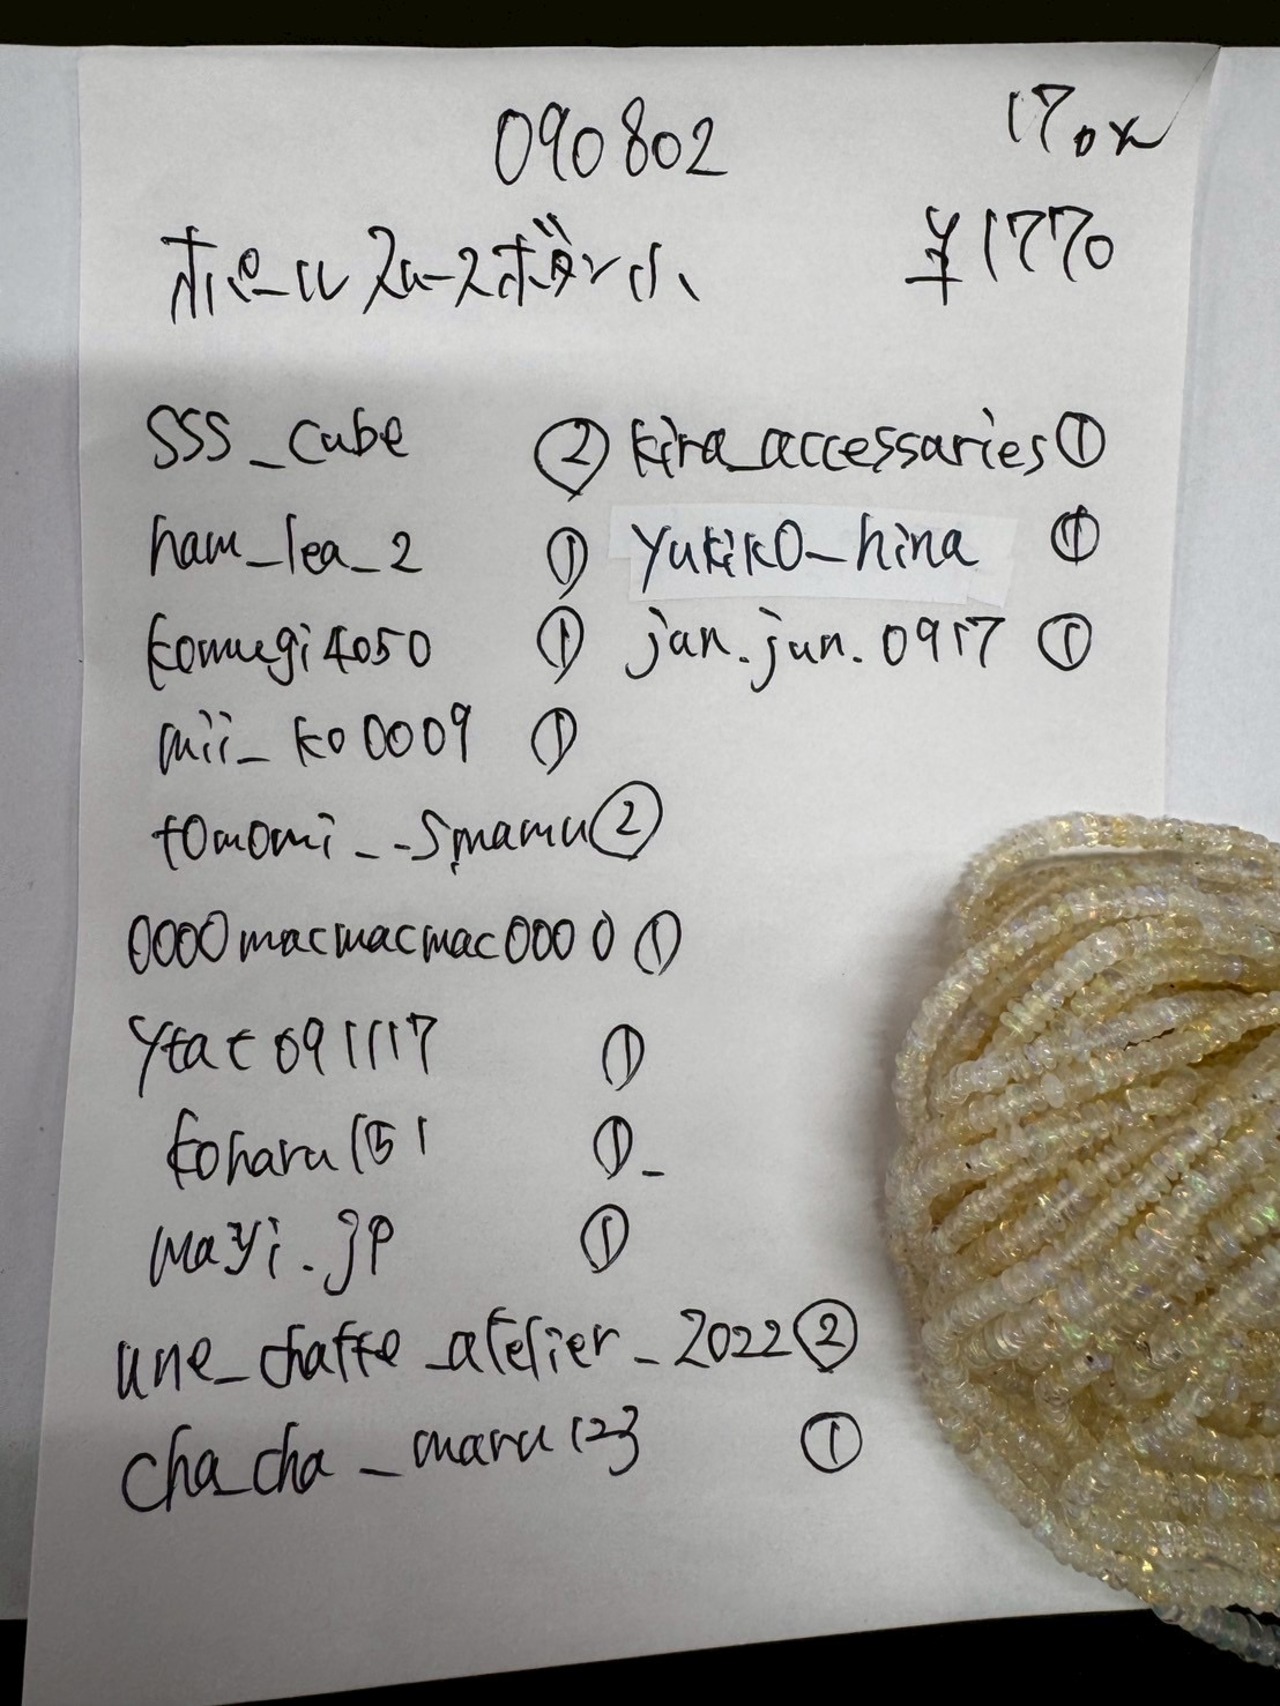 090802
170
¥1770
オパールスムースボタン小
SSS_cube ②
ham_lea_2 ①
komugi4050 ①
mii_ko0009 ①
tomomi_-smamu ②
0000macmacmac0000 ①
ytat091117 ①
koharu151 ①_
mayi.jp ①
une_chatte_atelier_2022 ②
cha_cha_maru123 ①
kira_accessaries ①
yukiko_hina ①
jan.jun.0917 ①